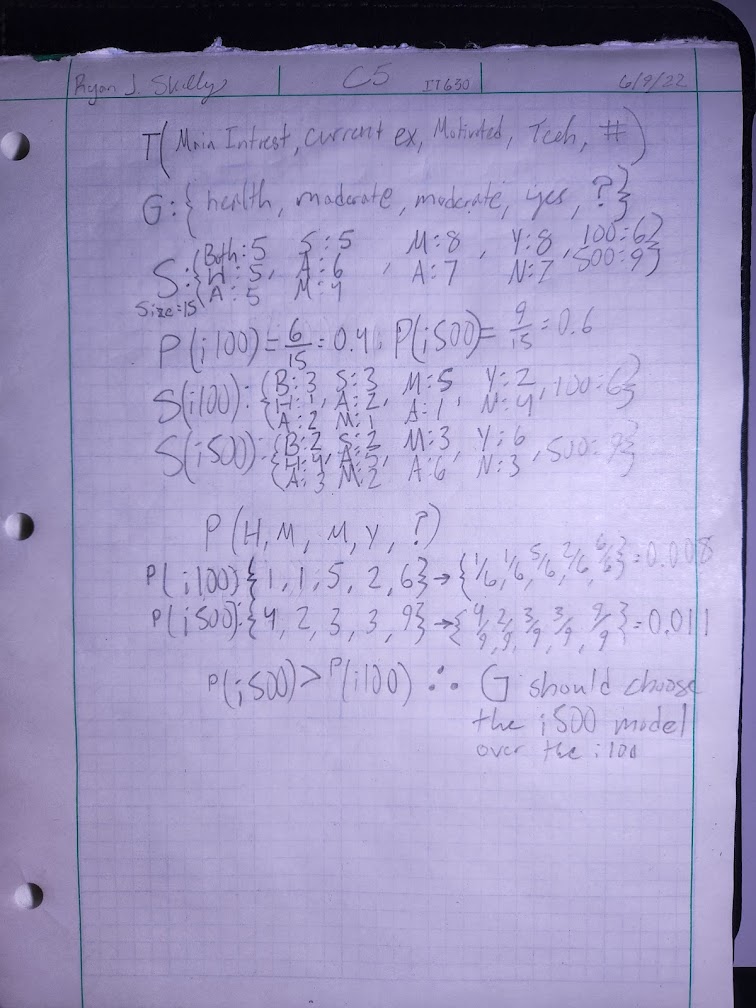 Ryan J. Skelly C5 IT630 6/9/22
T(Main Intrest, current ex, Motivated, Tech, #)
G:{health, moderate, moderate, yes, ?}
S:{Both:5 S:5 M:8 , Y:8 100:6}
H:5, A:6 , A:7 N:7, 500:9
Size:15 A:5 M:4
P(i100)=6/15=0.4; P(i500)=9/15=0.6
S(i100):{B:3 S:3 M:5 Y:2 ,100:6}
H:1, A:2, A:1, N:4
A:2 M:1
S(i500):{B:2 S:2 M:3 Y:6 , 500:9}
H:4, A:5, A:6, N:3
A:3 M:2
P(H, M, M, Y, ?)
P(i100){1, 1, 5, 2, 6}→{1/6, 1/6, 5/6, 2/6, 6/6}=0.008
P(i500):{4, 2, 3, 3, 9}→{4/9, 2/9, 3/9, 3/9, 9/9}=0.011
P(i500)>P(i100) ∴ G should choose
the i500 model
over the i100